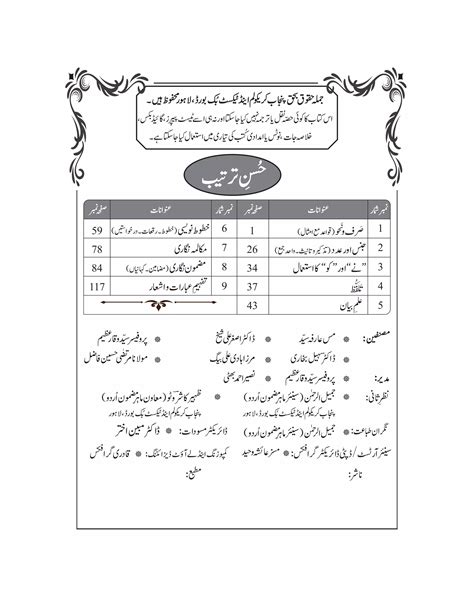 جملہ حقوق بحق پنجاب کریکولم اینڈ ٹیکسٹ بک بورڈ، لاہور محفوظ ہیں۔
اس کتاب کا کوئی حصہ نقل یا ترجمہ نہیں کیا جا سکتا اور نہ ہی اسے ٹیسٹ پیپرز، گائیڈ بکس،
خلاصہ جات، نوٹس یا امدادی کتب کی تیاری میں استعمال کیا جا سکتا ہے۔
حُسنِ ترتیب
نمبر شمار عنوانات صفحہ نمبر نمبر شمار عنوانات صفحہ نمبر
1 صَرف و نَحو (قواعد مع امثال) 1 6 خطوط نویسی (خطوط۔ رقعات۔ درخواستیں) 59
2 جنس اور عدد (تذکیر و تانیث۔ واحد جمع) 26 7 مکالمہ نگاری 78
3 ”نے“ اور ”کو“ کا استعمال 34 8 مضمون نگاری (مضامین۔ کہانیاں) 84
4 تلفّظ 37 9 تفہیمِ عبارات و اشعار 117
5 علمِ بیان 43
مصنّفین: ● مس عارفہ سیّد ● ڈاکٹر اصغر علی شیخ ● پروفیسر سیّد وقار عظیم
● ڈاکٹر سہیل بخاری ● مرزا ہادی علی بیگ ● مولانا مرتضیٰ حسین فاضل
مدیر: ● پروفیسر سیّد وقار عظیم ● نصیر احمد بھٹی
نظرِ ثانی: ● جمیل الرحمٰن (سینئر ماہرِ مضمون اُردو) ● ظہیر کاشر وٹو (معاون ماہرِ مضمون اُردو)
پنجاب کریکولم اینڈ ٹیکسٹ بک بورڈ، لاہور پنجاب کریکولم اینڈ ٹیکسٹ بک بورڈ، لاہور
نگران طباعت: ● جمیل الرحمٰن (سینئر ماہرِ مضمون اُردو) ڈائریکٹر مسودات: ● ڈاکٹر مبین اختر
سینئر آرٹسٹ / ڈپٹی ڈائریکٹر گرافکس: ● مسز عائشہ وحید کمپوزنگ اینڈ لے آؤٹ ڈیزائننگ: ● قادری گرافکس
ناشر: مطبع: